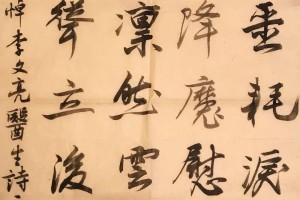 噩耗淚
降魔慰
凛然雲
聳立後
悼李文亮醫生詩